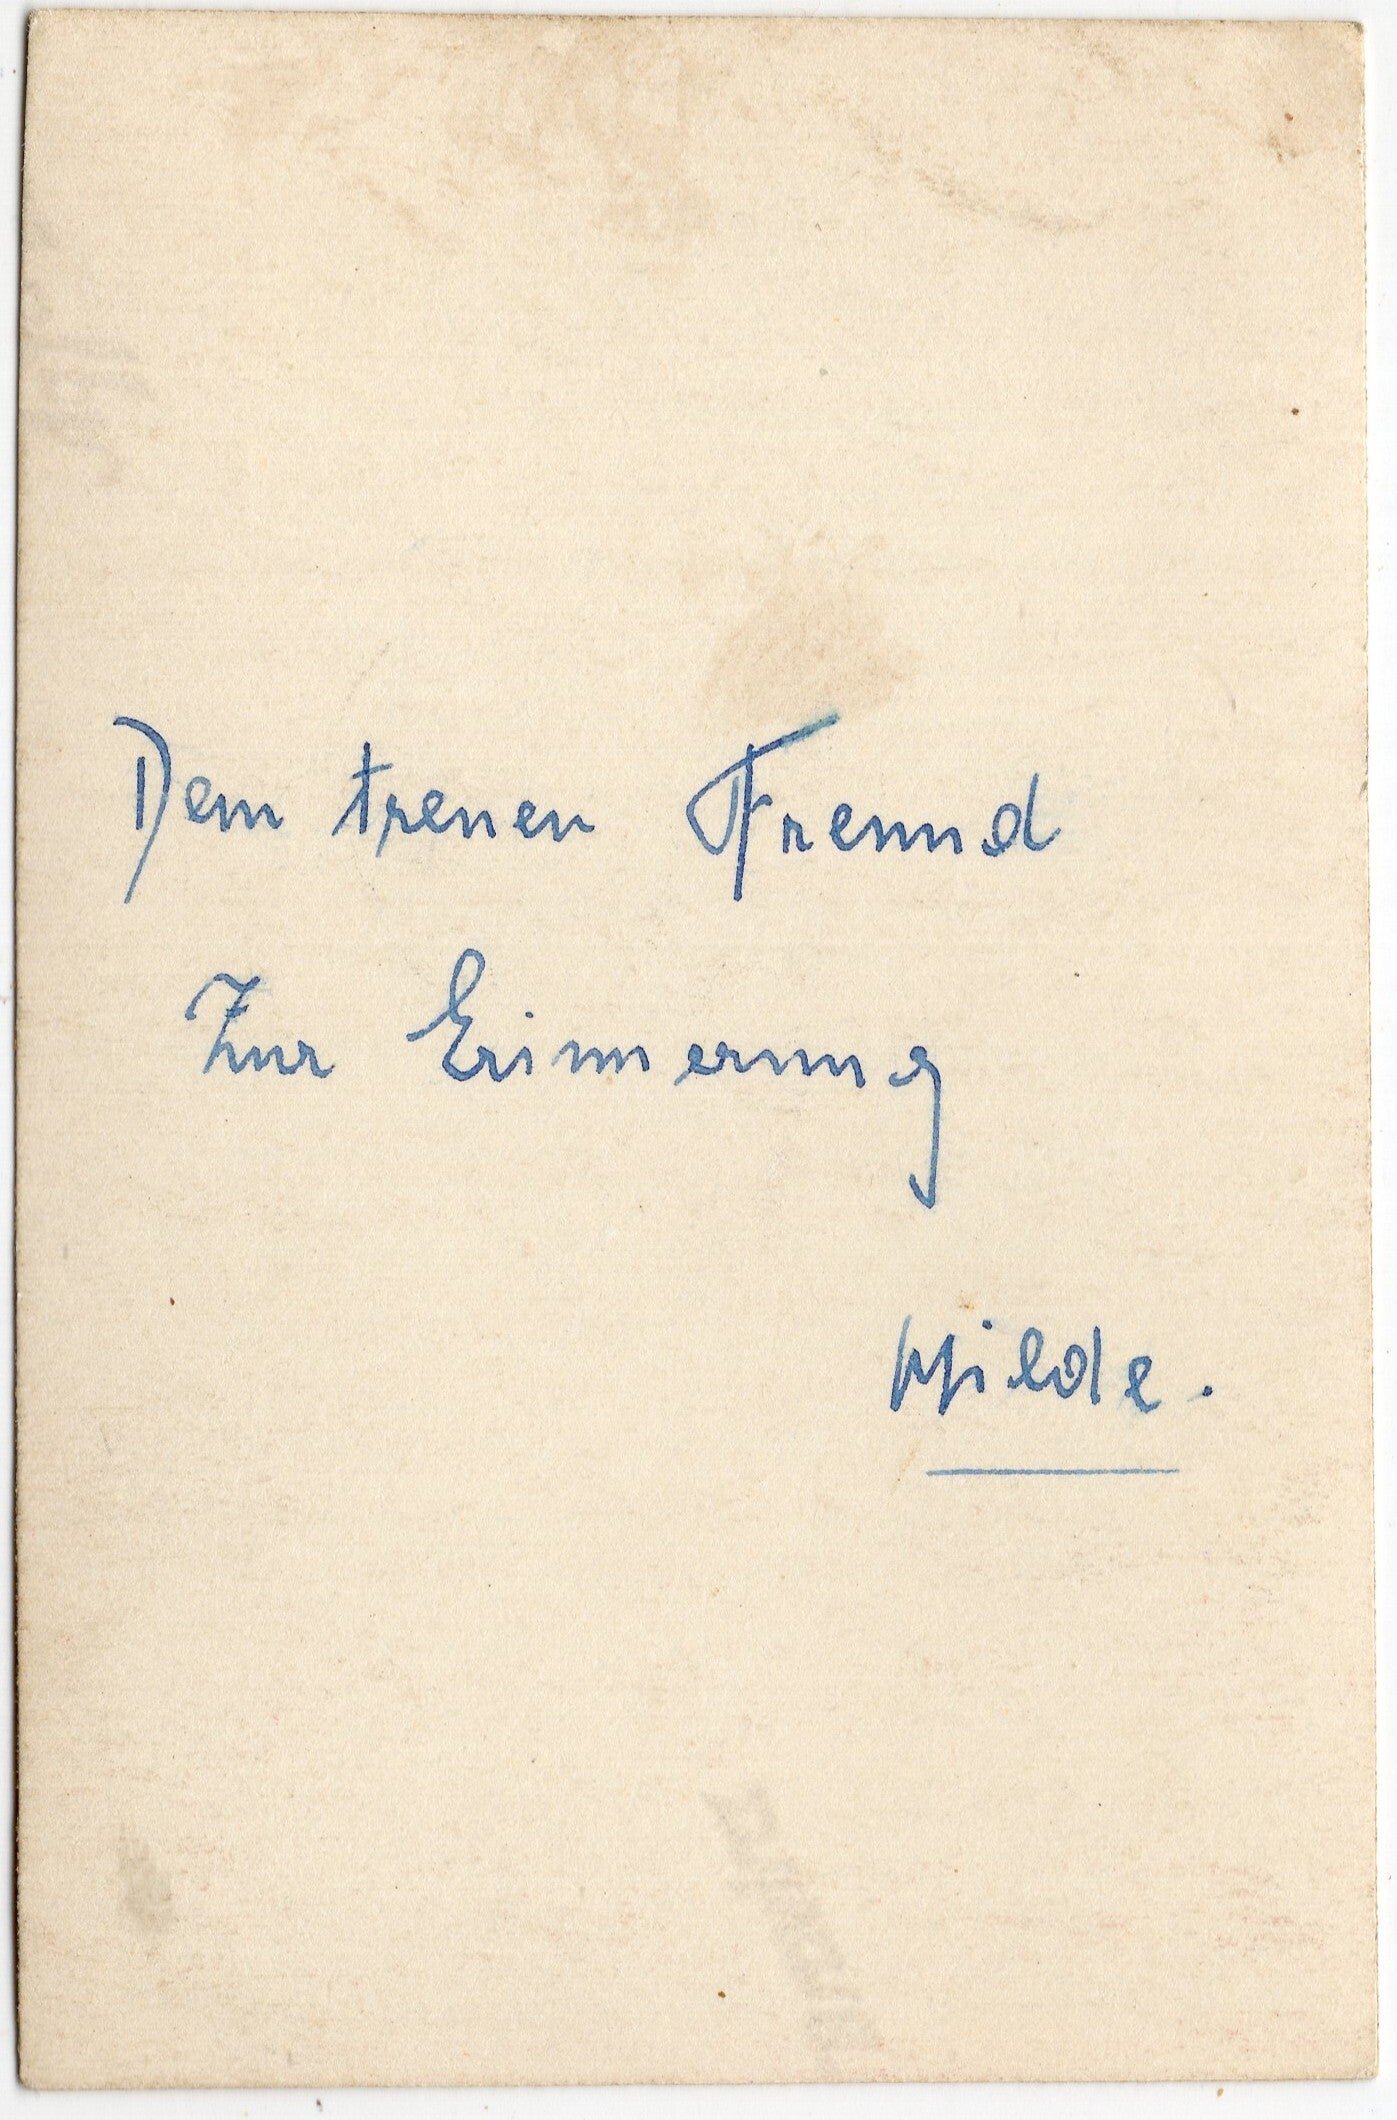 Dem treuen Freund
Zur Erinnerung
Hilde.